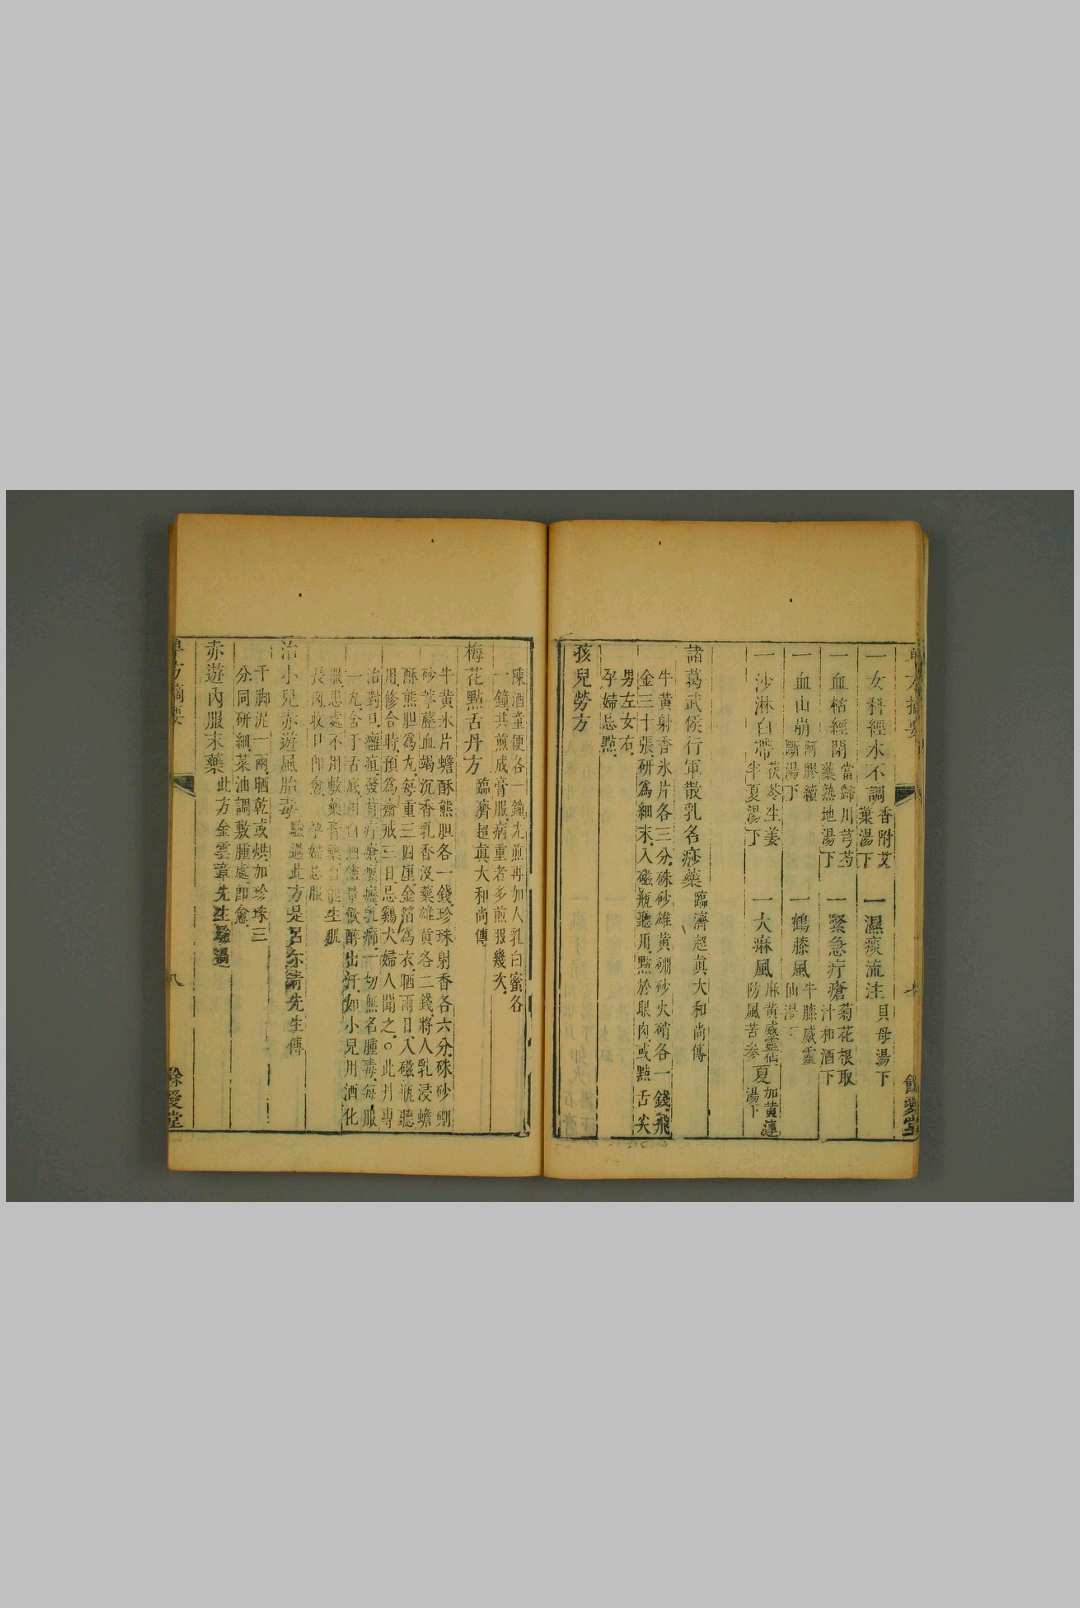 一女科經水不調 香附艾葉湯下
一濕痰流注 貝母湯下
一血枯經閉 當歸川芎芍藥熟地湯下
一緊急疔瘡 菊花根取汁和酒下
一血山崩 阿膠
湯下
一鶴膝風 牛膝威靈仙湯下
一沙淋白帶 茯苓生姜半夏湯下
一大麻風 麻黃威靈仙防風苦参夏加黃連湯下
諸葛武侯行軍散乳名痧藥 臨濟超真大和尚傳
牛黃射香氷片各三分硃砂雄黃硼砂火硝各一錢飛
金三十張研爲細末入磁瓶聽用點於眼肉或點舌尖
男左女右
孕婦忌點
孩兒勞方
陳酒童便各一鐘先煎再加人乳白蜜各
一鐘共煎成膏服病重者多煎服幾次
梅花點舌丹方 臨濟超真大和尚傳
牛黃氷片蟾酥熊胆各一錢珍珠射香各六分硃砂硼
砂葶藶血竭沉香乳香沒藥雄黃各二錢將人乳浸蟾
酥熊胆爲丸每重三四厘金箔爲衣晒兩日入磁瓶聽
用修合時預爲齋戒三日忌鷄犬婦人聞之○此丹專
治對口癰疽發背疔瘡
乳癤一切無名腫毒每服
一丸含于舌底
醉出汗如小兒用酒化
服患處不用敷藥
生肌
長肉收口即愈 孕婦忌服
治小兒赤遊風胎毒 驗過此方是呂亦清先生傳
千脚泥一兩晒乾或烘加珍珠三
分同研細菜油調敷腫處即愈
赤遊內服末藥 此方金雲章先生驗過
單方摘要
八
餘慶堂